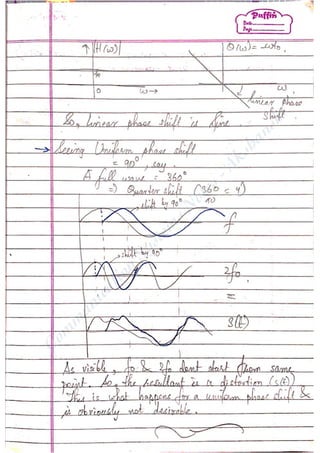 Puffin
Date
Page
|H(ω)|
θ(ω) = -ωt₀.
k
0 ω→
ω
linear phase shift
So, linear phase shift is fine
→ Seeing Uniform phase shift
= 90°, say.
A full wave = 360°
⇒ Quarter shift (360 = 4)
90
shift by 90°
f
shift by 90°
2f₀
=
s(t)
As visible, f₀ & 2f₀ dont start from same
point. So, the resultant is a distortion (s(t))
This is what happens for a uniform phase shift &
is obviously not desirable.